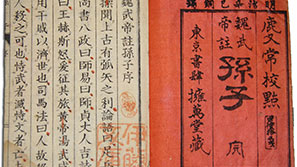 校點
魏武帝註
孫子
東京書肆
萬堂藏
魏武帝註孫子序
上古有弧矢之利論語
尚書八政曰師易曰師貞丈人吉
曰王赫斯怒爰征其旅黃帝湯武
用干戈以濟世也司馬法曰人故
人殺之可也恃武者滅恃文者亡